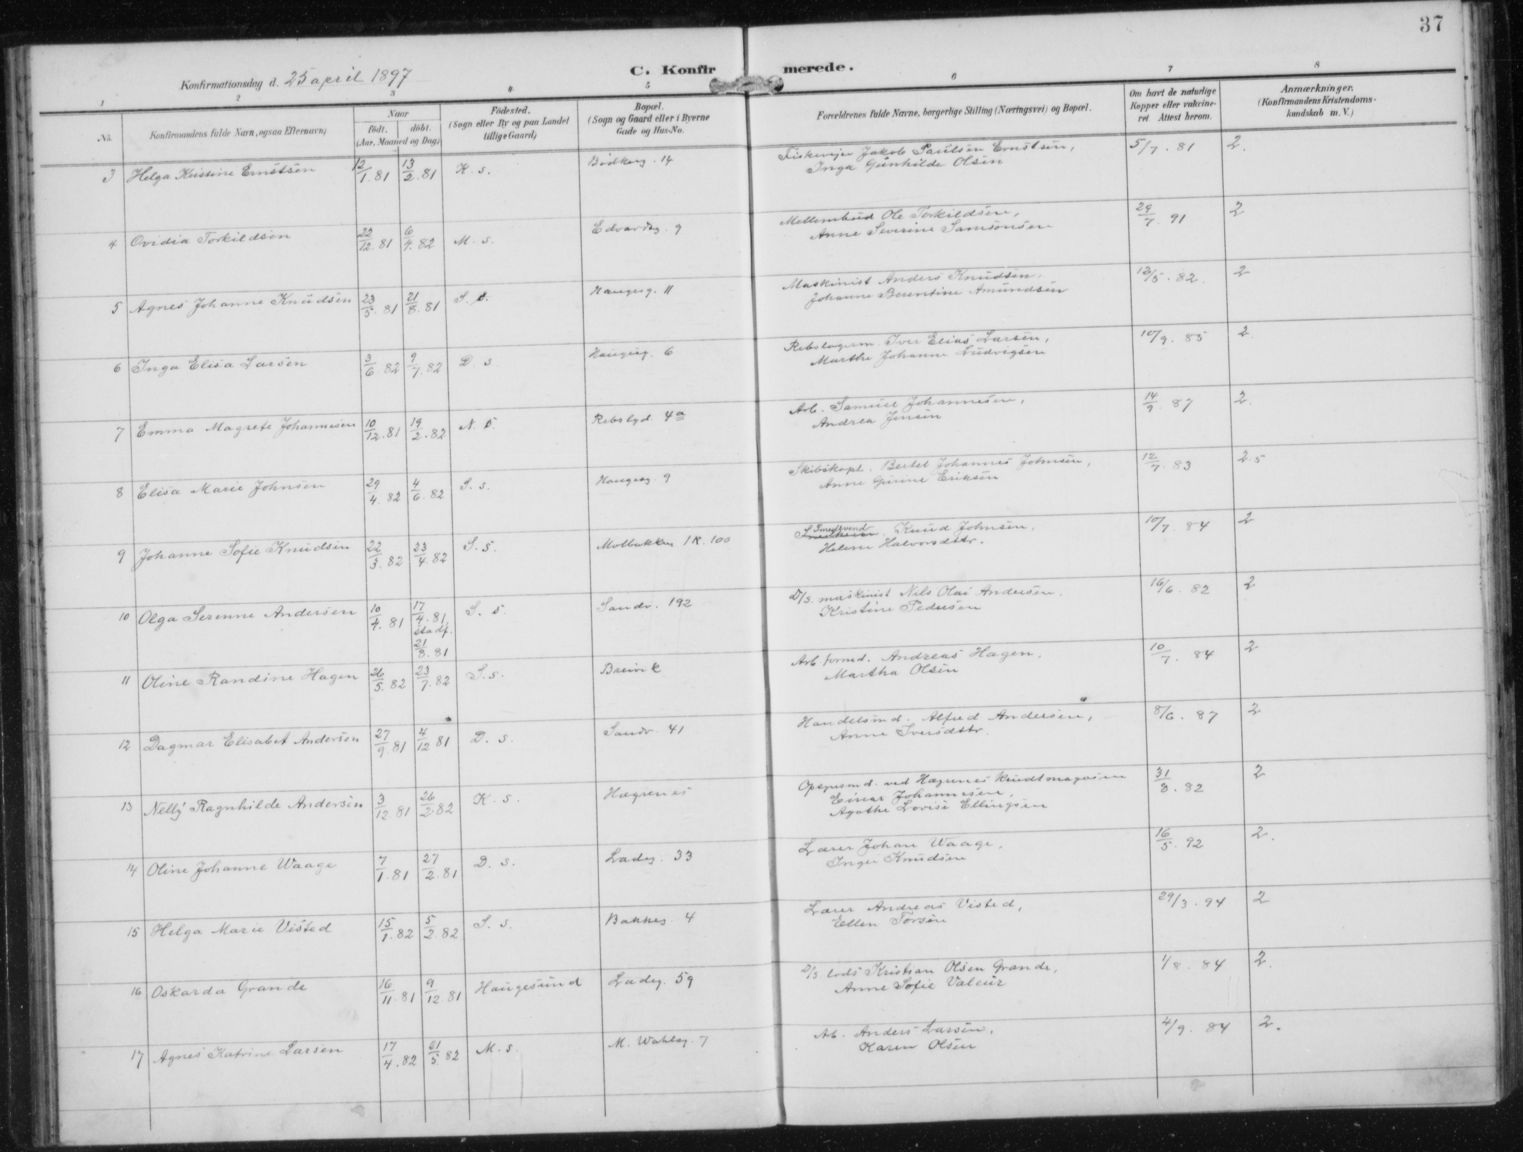 37
C. Konfirmerede.
Konfirmationsdag d. 25 april 1897
1 2 3 4 5 6 7 8
No. Konfirmandens fulde Navn, ogsaa Efternavn) Naar født. døbt. (Aar, Maaned og Dag) Fødested. (Sogn eller By og paa Landet tillige Gaard) Bopæl. (Sogn og Gaard eller i Byerne Gade og Hus-No. Forældrenes fulde Navne, borgerlige Stilling (Næringsvei) og Bopæl. Om havt de naturlige Kopper eller vaccineret Attest herom. Anmærkninger. (Konfirmandens Kristendomskundskab m. V.)
3 Helga Kristine Ernstsen 12/1.81 13/2.81 K. s. 14 Jakob Paulsen Ernstsen, 5/7. 81 2.
Inga Gunhilde Olsen
4 Ovidia Torkildsen 22/12.81 6/4.82 M. s. Edvardsg. 9 Mellembud Ole Torkildsen, 29/7. 91 2
Anne Severine Samsonsen
5 Agnes Johanne Knudsen 23/5.81 21/8.81 S. s. Haugesg. 11 Maskinist Anders Knudsen. 12/5. 82. 2
Johanne Berentine Amundsen
6 Inga Elisa Larsen 3/6.82 9/7.82 D. s. Haugesg. 6 Iver Elias Larsen, 10/9. 85 2.
Marthe Johanne Ludvigsen
7 Emma Magrete Johannesen 10/12.81 19/2.82 N. s. Rebslgd. 4a Arb. Samuel Johannesen, 14/9. 87 2.
Andrea Jensen
8 Elisa Marie Johnsen 29/4.82 4/6.82 S. s. Haugesg. 9 Skibskapt. Bertel Johannes Johnsen, 12/7. 83 2.5
Anne Eriksen
9 Johanne Sofie Knudsen 22/3.82 23/4.82 S. s. Møllebakken 1 R. 100 Smedsvend Knud Johnsen. 10/7. 84 2
Helene Halvorsdttr.
10 Olga Serenne Andersen 10/4.81 17/4.81, stadf. 21/8.81 S. s. Sandv. 192 D/S. maskinist Nils Olai Andersen. 16/6. 82 2
Kristine Pedersen
11 Oline Randine Hagen 26/5.82 23/7.82 S. s. Breivik Arb.formd. Andreas Hagen. 10/7. 84 2
Martha Olsen
12 Dagmar Elisabet Andersen 27/9.81 4/12.81 D. s. Sandv. 41 Handelsmd. Alfred Andersen, 8/6. 87 2
Anne Iversdttr.
13 Nelly Ragnhilde Andersen 3/12.81 26/2.82 K. s. Hægrenes Opsynsmd. ved Hægrenes 31/3. 82 2
Einar Johannesen,
Agathe Lovise Ellingsen
14 Oline Johanne Waage 7/1.81 27/2.81 D. s. Ladeg. 33 Lærer Johan Waage, 16/5. 92 2.
Inger Knudsen
15 Helga Marie Visted 15/1.82 5/2.82 S. s. Bakkeg. 4 Lærer Andreas Visted, 29/3. 94 2
Ellen
16 Oskarda Grande 16/11.81 9/12.81 Haugesund Ladeg. 59 D/S lods Kristian Olsen Grande, 1/8. 84 2.
Anne Sofie Valeur
17 Agnes Katrine Larsen 17/4.82 21/5.82 M. s. M. Wahlsg. 7 Arb. Anders Larsen, 4/9. 84 2.
Karen Olsen